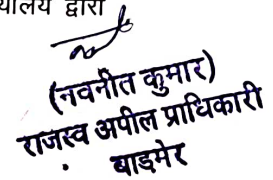 द्वारा
(नवनीत कुमार)
राजस्व अपील प्राधिकारी
बाडमेर